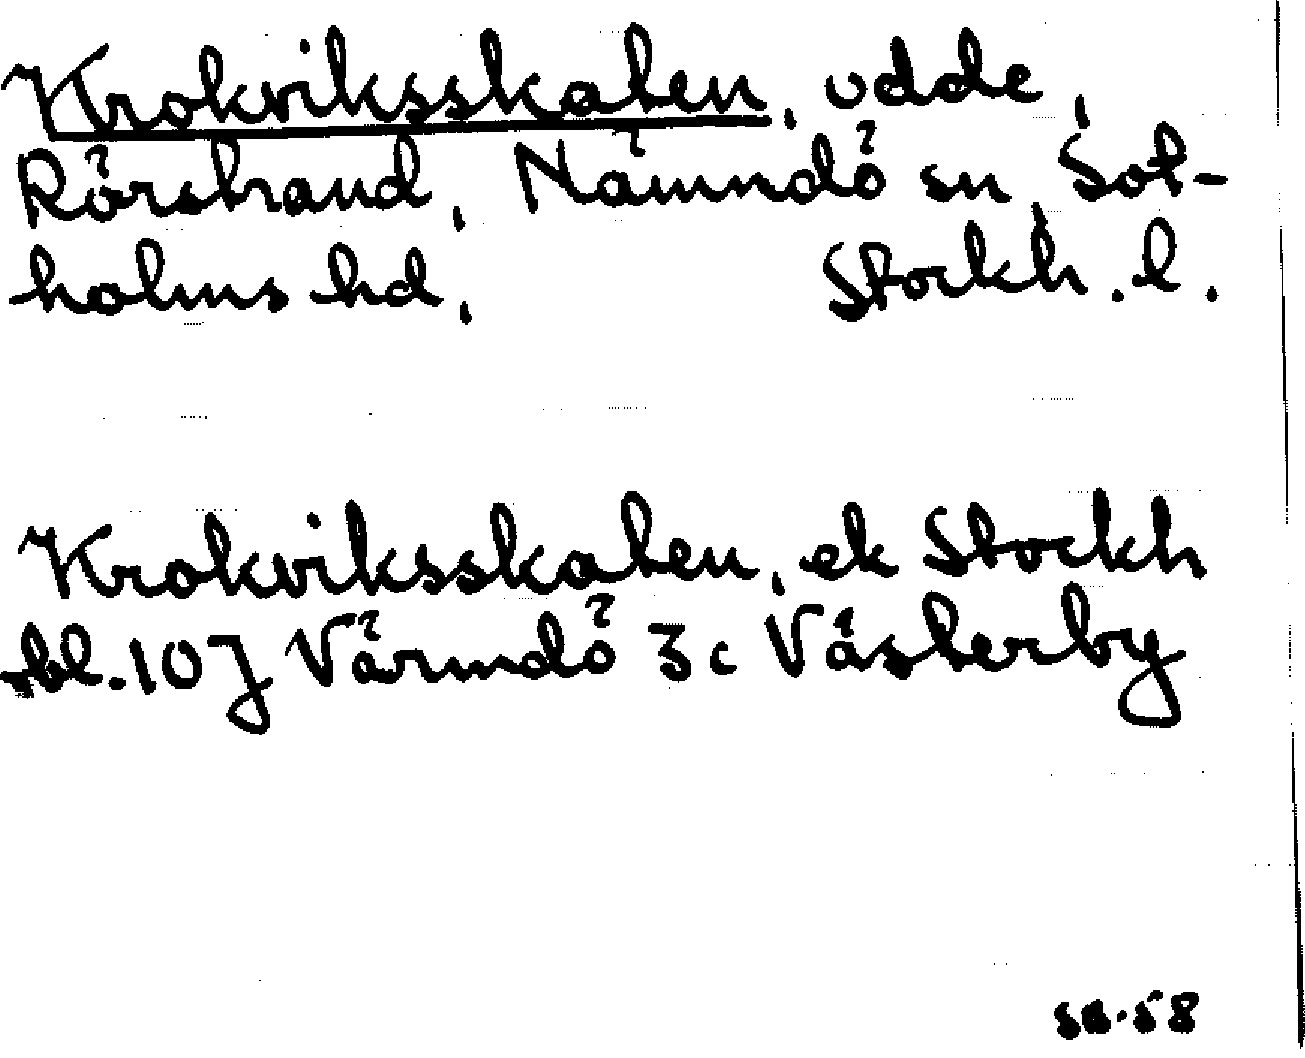 Krokviksskaten, udde,
Rörstrand, Nämndö sn, Sot-
holms hd, Stockh. l.
Krokviksskaten, ek Stockh
bl. 107 Värmdö 3c Västerby